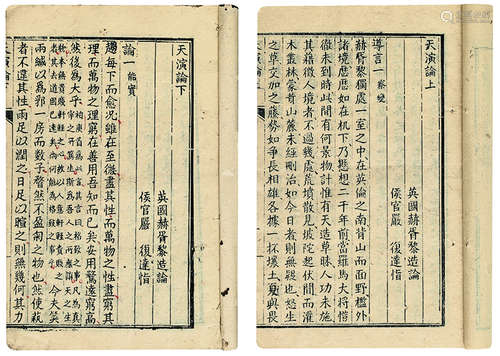 天演論上
英國赫胥黎造論
侯官嚴 復達恉
導言一 察變
赫胥黎獨處一室之中在英倫之南背山而面野檻外
諸境歷歷如在机下乃懸想二千年前當羅馬大將愷
徹未到時此間有何景物計惟有天造草昧人功未施
其藉徵人境者不過幾處荒墳散見坡陀起伏間而灌
木叢林蒙茸山麓未經刪治如今日者則無疑也怒生
之草交加之藤勢如爭長相雄各據一抔壤土夏與畏
天演論下
英國赫胥黎造論
侯官嚴 復達恉
論一 能實
每下而愈況雖在至微盡其性而萬物之性盡窮其
理而萬物之理窮在善用吾知而已矣安用騖遠窮高
然後為大乎 柏庚首為此言其言曰格致之事凡為真
今夫筴
兩緘以為郛一房而數子瞀然不盈匊之物也然使蓺
者不違其性雨足以潤之日足以暄之則無幾何其力